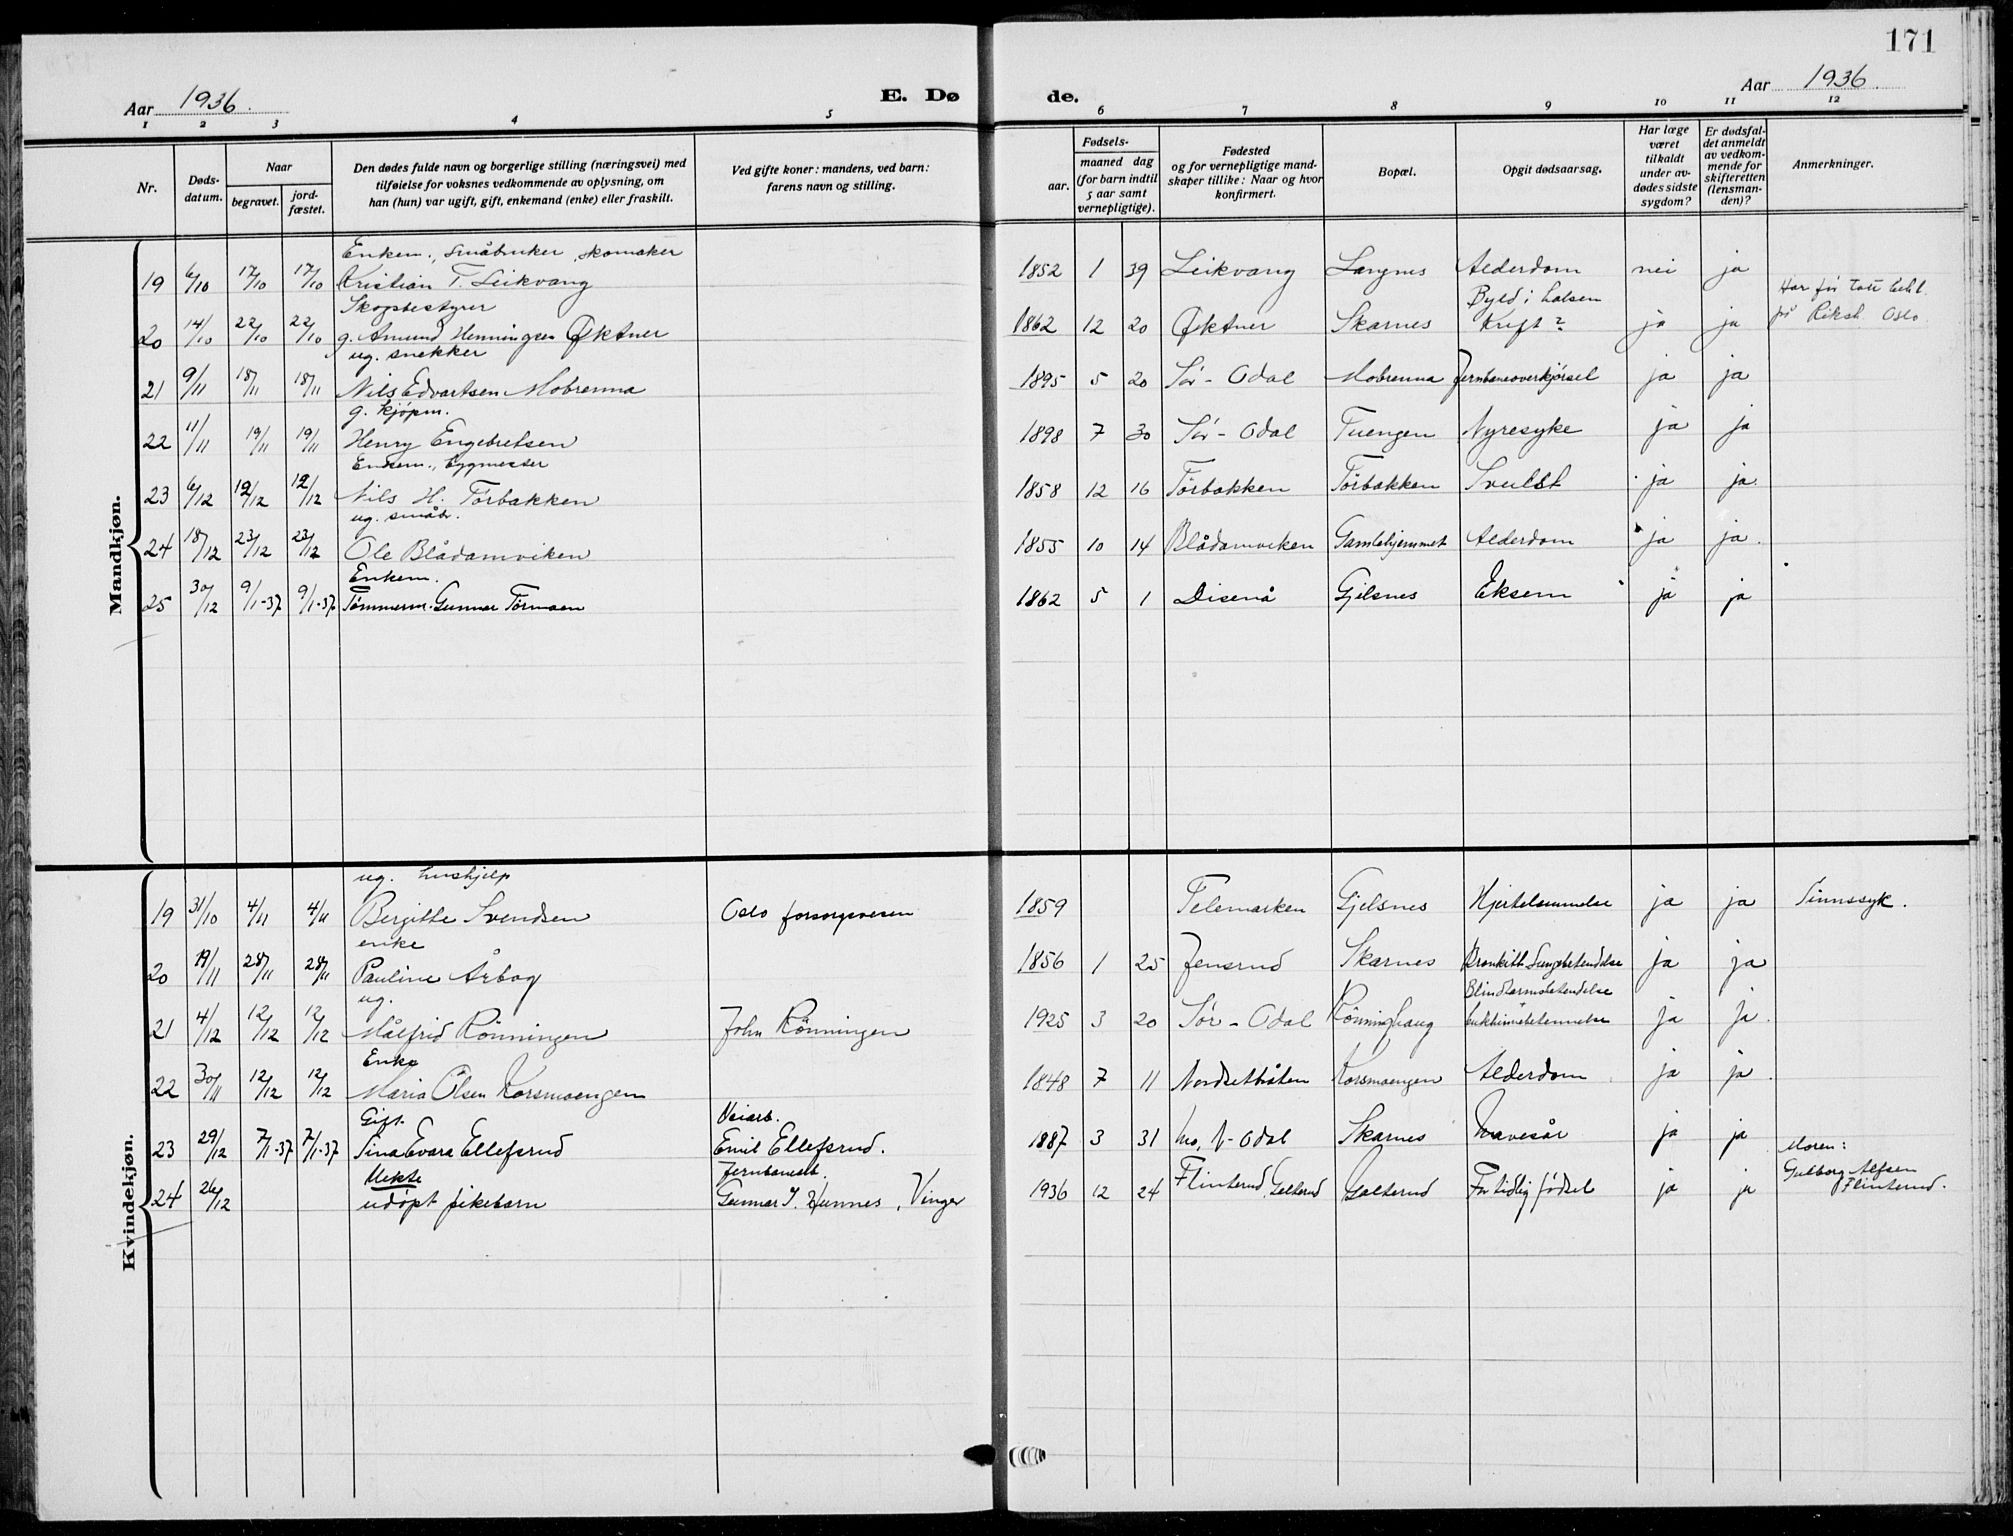 171
Aar 1936. E. Dø de. Aar 1936
1 2 3 4 5 6 7 8 9 10 11 12
Nr.
Døds-
datum.
Naar
begravet.
jord-
fæstet.
Den dødes fulde navn og borgerlige stilling (næringsvei) med
tilføielse for voksnes vedkommende av oplysning, om
han (hun) var ugift, gift, enkemand (enke) eller fraskilt.
Ved gifte koner: mandens, ved barn:
farens navn og stilling.
Fødsels-
aar.
maaned dag
(for barn indtil
5 aar samt
vernepligtige).
Fødested
og for vernepligtige mand-
skaper tillike: Naar og hvor
konfirmert.
Bopæl.
Opgit dødsaarsag.
Har læge
været
tilkaldt
under av-
dødes sidste
sygdom?
Er dødsfal-
det anmeldt
av vedkom-
mende for
skifteretten
(lensman-
den)?
Anmerkninger.
Mandkjøn.
Enkem., småbruker, skomaker
19 6/10 17/10 17/10 Kristian T. Leikvang 1852 1 39 Leikvang Langnes Alderdom nei ja
Skogbestyrer Byld i halsen
20 14/10 22/10 22/10 g. Amund Henningsen Øktner 1862 12 20 Øktner Skarnes Kreft? ja ja Har før
på Riksh. Oslo.
ug. snekker
21 9/11 18/11 18/11 Nils Edvartsen Mobrenna 1895 5 20 Sør-Odal Mobrenna Jernbaneoverkjørsel ja ja
g. kjøpm.
22 11/11 19/11 19/11 Henry Engebretsen 1898 7 30 Sør-Odal Tuengen Nyresyke ja ja
Enkem., byggmester
23 6/12 12/12 12/12 Nils H. Torbakken 1858 12 16 Torbakken Torbakken Svulst ja ja.
ug. småbr.
24 18/12 23/12 23/12 Ole Blådamviken 1855 10 14 Blådamviken Gamlehjemmet Alderdom ja ja.
Enkem.
25 30/12 9/1-37 9/1-37 Tømmerm. Gunnar Tormoen 1862 5 1 Disenå Gjelsnes Eksem ja ja
Kvindekjøn.
ug. hushjelp
19 31/10 4/11 4/11 Bergitte Svendsen Oslo forsorgsvesen 1859 Telemarken Gjelsnes Hjertelammelse ja ja Sinnssyk.
enke
20 19/11 28/11 28/11 Pauline Årbog 1856 1 25 Jensrud Skarnes Bronkitt Lungebetendelse ja ja
ug. Blindtarmsbetendelse
21 4/12 12/12 12/12 Målfrid Rönningen John Rönningen 1925 3 20 Sør-Odal Rönninghaug bukhinnebetennelse ja ja.
Enke
22 30/11 12/12 12/12 Maria Olsen Korsmoengen 1848 7 11 Nordsetbråten Korsmoengen Alderdom ja ja.
Gift. Veiarb.
23 29/12 7/1-37 7/1-37 Tina Evara Ellefsrud Emil Ellefsrud. 1887 3 31 Mo, N-Odal Skarnes Mavesår ja ja
Uekte Jernbanearb.
24 26/12 udøpt pikebarn Gunnar I. Hunnes, Vinger 1936 12 24 Flinterud, Galterud Galterud For tidlig fødsel ja ja Moren:
Gulborg Alfsen
Flinterud.